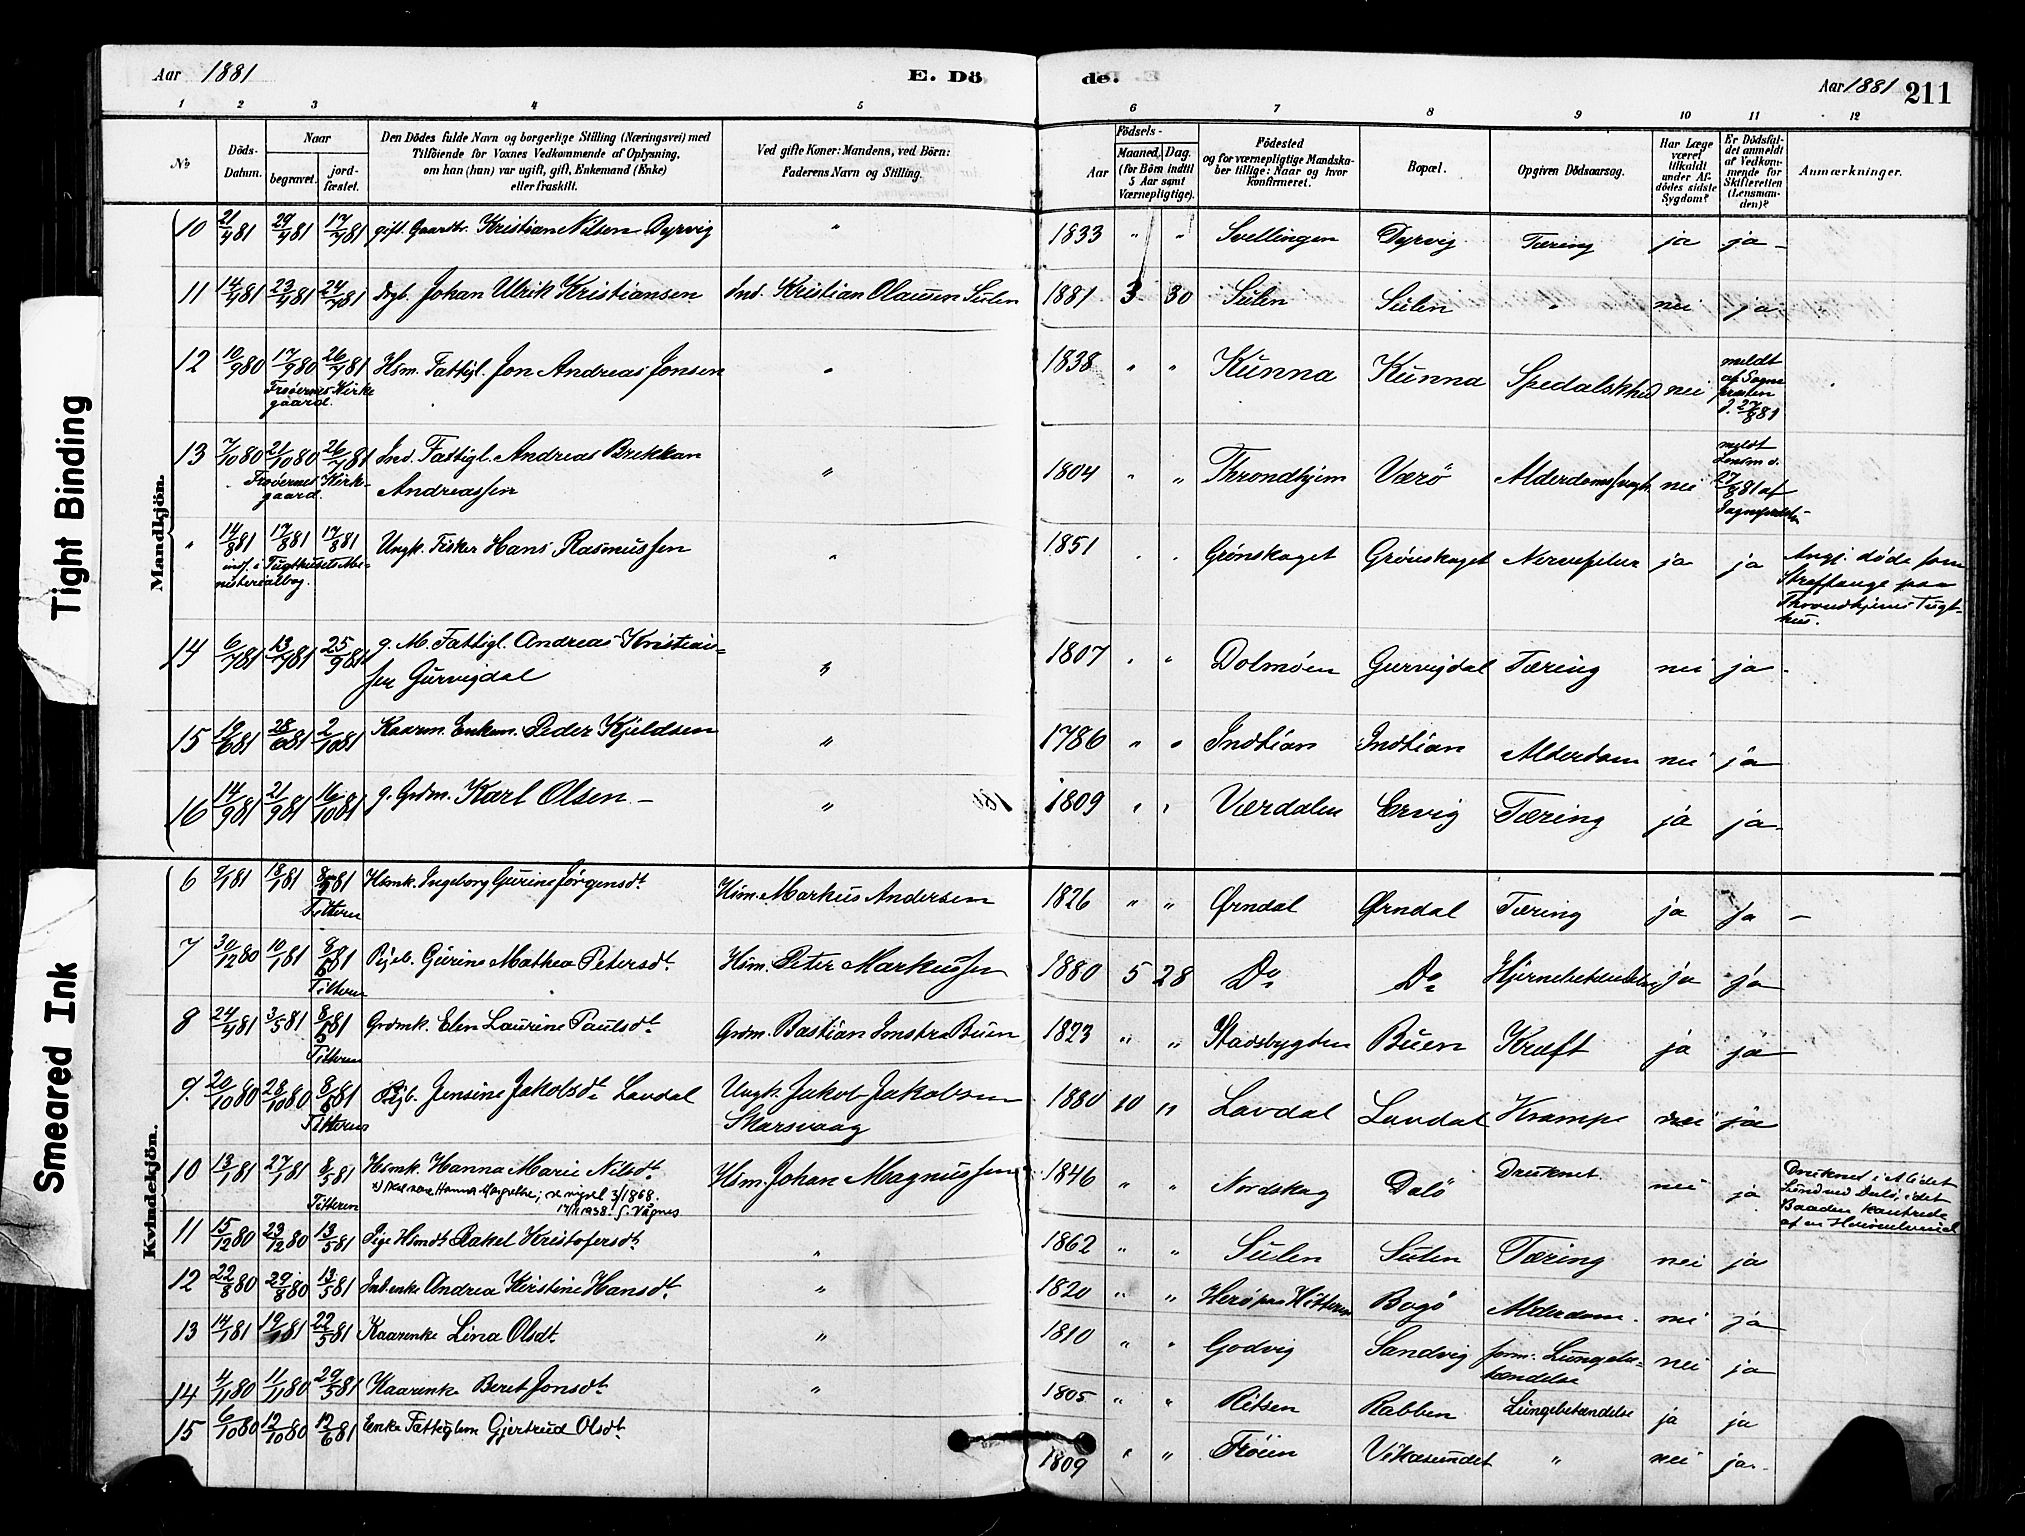 Aar 1881
E. Dö
de.
Aar 1881 211
1 2 3 4 5 6 7 8 9 10 11 12
No
Döds-Datum.
Naar
begravet. jord-fæstet.
Den Dödes fulde Navn og borgerlige Stilling (Næringsvei) med
Tilföiende for Voxnes Vedkommende af Oplysning,
om han (hun) var ugift, gift, Enkemand (Enke)
eller fraskilt.
Ved gifte Koner: Mandens, ved Börn:
Faderens Navn og Stilling.
Födsels-
Aar
Maaned. Dag.
(for Börn indtil
5 Aar samt
Værnepligtige).
Födested
og for værnepligtige Mandska-
ber tillige: Naar og hvor
konfirmeret.
Bopæl.
Opgiven Dödsaarsag.
Har Læge
været
tilkaldt
under Af-
dödes sidste
Sygdom?
Er Dödsfal-
det anmeldt
af Vedkom-
mende for
Skifteretten
(Lensman-
den)?
Anmærkninger.
Mandkjön.
10 21/4 81 29/4 81 17/7 81 gift. Gaardbr. Kristian Nilsen Dyrvig " 1833 " " Svellingen Dyrvig Tæring ja ja -
11 14/4 81 23/4 81 24/7 81 Dreb. Johan Ulrik Kristiansen Ind. Kristian Olausen Sulen 1881 3 30 Sulen Sulen " nei ja
12 10/9 80 17/9 80 26/7 81 Hsm. Fattigl. Jon Andreas Jonsen " 1838 " " Kunna Kunna Spedalskhed nei meldt
af Sogne
præsten
d. 27/8 81
Frøiernes Kirke
gaard.
13 7/10 80 21/10 80 26/7 81 Ind. Fattigl. Andreas Brekkan
Andreassen " 1804 " " Throndhjem Værö Alderdomssvagh. nei meldt
Lensm d.
27/8 81 af
Sognepræsten
Frøiernes Kirke-
gaard
" 14/8 81 17/8 81 17/8 81 Ungk. Fisker Hans Rasmussen " 1851 " " Grönskaget Grönskaget Nervefeber ja ja Angj. døde som
Straffange paa
Throndhjems Tugt-
hus.
indf. i Tugthusets Mi-
nisterialbog.
14 6/7 81 13/7 81 25/9 81 g. M. Fattigl. Andreas Kristian-
sen Gurvigdal " 1807 " " Dolmöen Gurvigdal Tæring nei ja
15 19/6 81 28/6 81 2/10 81 Kaarm. Enkem. Peder Kjeldsen " 1786 " " Indtian Indtian Alderdom nei ja
16 14/9 81 21/9 81 16/10 81 g. Grdm. Karl Olsen - " 1809 " " Værdalen Ervig Tæring ja ja
Kvindekjön.
6 9/1 81 18/1 81 8/5 81 Hsmk. Ingeborg Gurine Jörgensdt. Hsm. Markus Andersen 1826 " " Ørndal Ørndal Tæring ja ja -
Titteren
7 30/12 80 10/1 81 8/5 81 Pigeb. Gurine Mathea Petersdt. Hsm. Peter Markussen 1880 5 28 Do Do Hjernebetændelse ja ja
Titteren
8 24/4 81 3/5 81 8/5 81 Grdmk. Elen Laurine Paulsdt. Grdm. Bastian Jonstra Buen 1823 " " Stadsbygden Buen Kræft ja ja
Titteren
9. 20/10 80 28/10 80 8/5 81 Pigb. Jensine Jakobsdt. Lavdal Ungk. Jakob Jakobsen
Skarsvaag 1880 10 " Lavdal Lavdal Krampe nei ja
Titteren
10 13/1 81 27/1 81 8/5 81 Hsmk. Hanna Marie Nilsdt. Hsm. Johan Magnussen 1846 " " Nordskag Dalö Druknet nei ja
x) skal være Hanna Margrethe; se vigsel 3/1868.
17/11 1938. S. Vågnes
Titteren
Druknet i det
Sund ved Dalö, idet
Baaden kantrede
af en
11 15/12 80 23/12 80 13/5 81 Pige Hsmdt Rakel Kristofersdt. " 1862 " " Sulen Sulen Tæring nei ja
12 22/8 80 29/8 80 13/5 81 Ind.enke Andrea Kirstine Hansdt. " 1820 " " Herö paa Hitteren Bogö Alderdom. nei ja
13 14/1 81 19/1 81 22/5 81 Kaarenke Lina Olsdt. " 1810 " " Godvig Sandvig form. Lungebe-
tændelse nei ja
14 4/11 80 11/11 80 29/5 81 Kaarenke Beret Jonsdt. " 1805 " " Ritsen Rabben Lungebetændelse ja ja
15 6/10 80 12/10 80 12/6 81 Enke Fattiglem Gjertrud Olsdt. 1809 " " Fröien Vikasundet " nei ja
Tight Binding
Smeared Ink